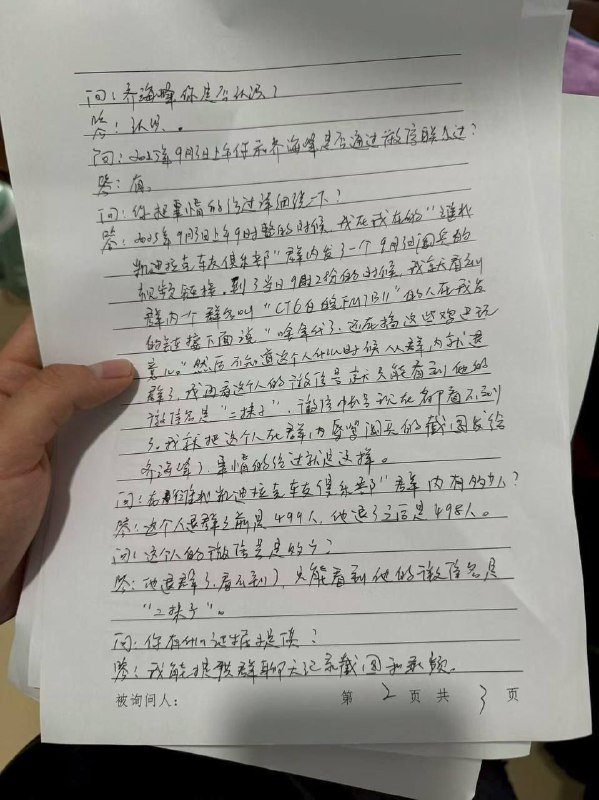 问：乔海峰你是否认识？
答：认识。
问：2025年9月3日上午你和乔海峰是否通过微信联系过？
答：有。
问：你把事情的经过详细说一下？
答：2025年9月3日上午9时整的时候，我在我在的“
凯迪拉克车友俱乐部”群内发了一个9月3日阅兵的
视频链接，到了当日9时2份的时候，我就看到
群内一个群名叫“CT6白的皖FM7B11”的人在我发
的链接下面说“啥年代了，还在搞这些鸡巴玩
意儿。”然后不知道这个人什么时候从群内就退
群了，我再看这个人的微信号就只能看到他的
微信名是“二扶子”，微信账号现在都看不到
了，我就把这个人在群内辱骂阅兵的截图发给
乔海峰了，事情的经过就是这样。
问：凯迪拉克车友俱乐部”群内有多少人？
答：这个人退群之前是499人，他退了之后是498人。
问：这个人的微信号是多少？
答：他退群了，看不到了，只能看到他的微信名是
“二扶子”。
问：你有什么证据提供？
答：我能提供群聊天记录截图和录频。
被询问人：
第 2 页 共 3 页